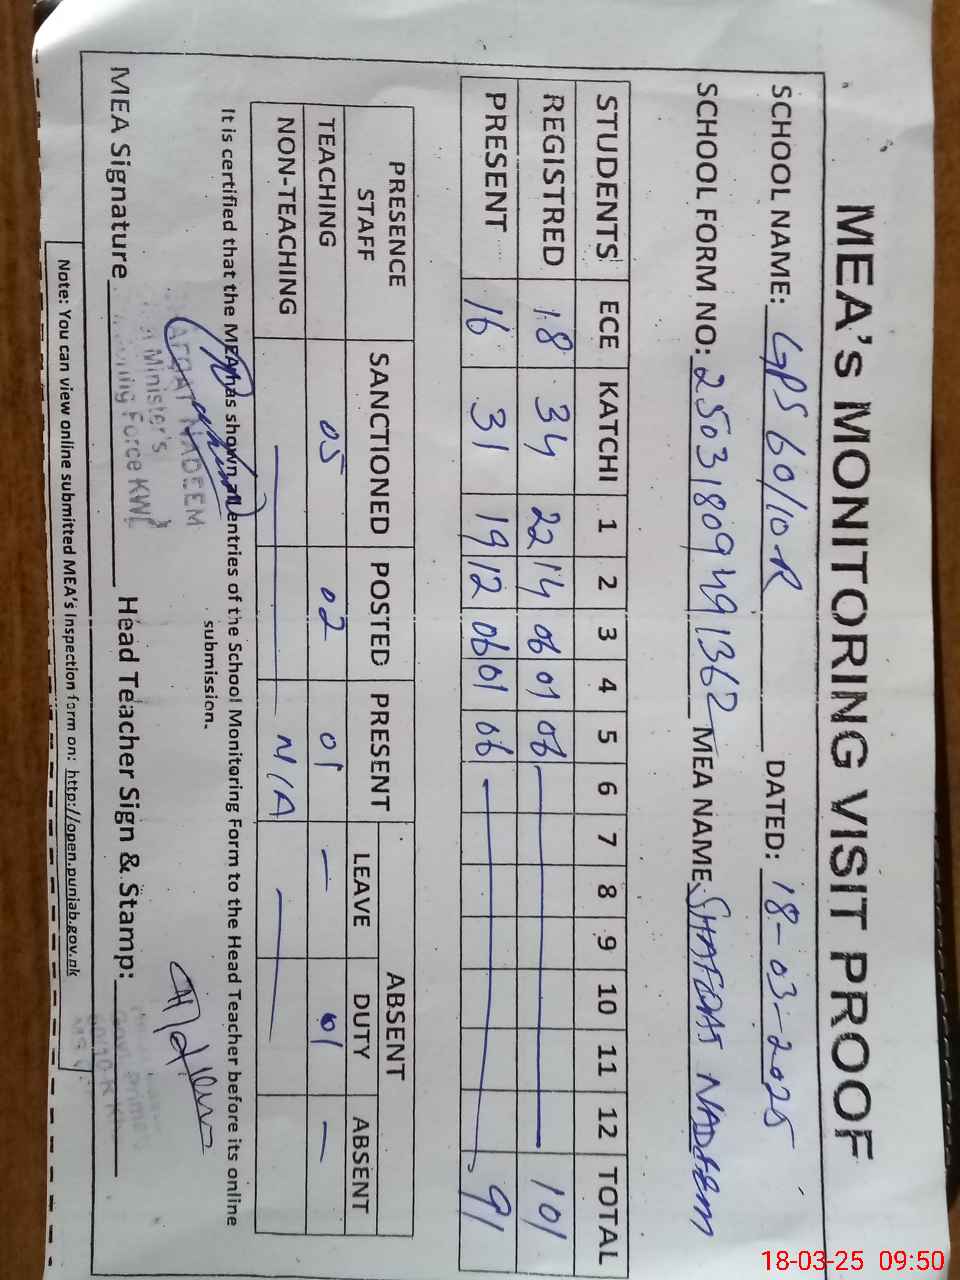 MEA's MONITORING VISIT PROOF
SCHOOL NAME: GPS 60/10-R DATED: 18-03-2025
SCHOOL FORM NO: 25031809491362 MEA NAME: SHAFQAT NADEEM
STUDENTS ECE KATCHI 1 2 3 4 5 6 7 8 9 10 11 12 TOTAL
REGISTRED 18 34 22 14 06 01 06 101
PRESENT 16 31 19 12 06 01 06 91
PRESENCE STAFF SANCTIONED POSTED PRESENT ABSENT
LEAVE DUTY ABSENT
TEACHING 05 02 01 — 01 —
NON-TEACHING — N/A —
It is certified that the MEA has shown all entries of the School Monitoring Form to the Head Teacher before its online
submission.
MEA Signature Head Teacher Sign & Stamp:
SHAFQAT NADEEM
Minister's
Monitoring Force KWL
Note: You can view online submitted MEA's Inspection form on: http://open.punjab.gov.pk
18-03-25 09:50